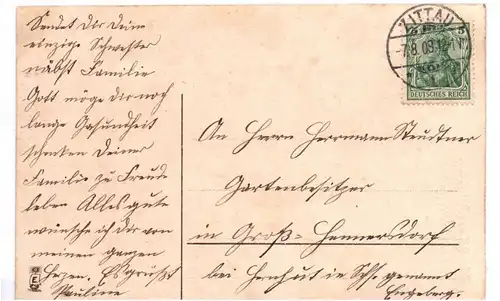 Sendet dir deine
einzige Schwester
näbst Familie
Gott möge dir noch
lange Gesundheit
schenken Deiner
Familie zu Freude
leben Alles gute
wünsche ich dir von
meinen ganzen
Herzen. Es grüßt
Pauline
ZITTAU
-7.8.08.
5 5
DEUTSCHES REICH
An Herrn Herrmann Steudtner
Gartenbesitzer
in Groß-Hennersdorf
bei Herrnhut in Schs. genannt
Engeberg.